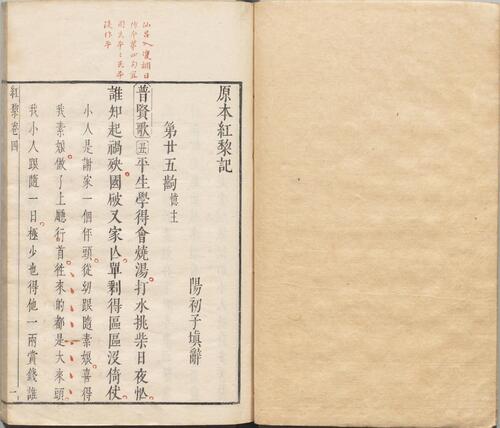 原本紅黎記
陽初子填辭
第廿五齣 憶主
普賢歌 丑 平生學得會燒湯打水挑柴日夜忙
誰知起禍殃國破又家亾單剩得區區沒倚仗
小人是謝家一個伻頭從幼跟隨素娘喜得
我素娘做了上廳行首徃來的都是大來頭
我小人跟隨一日極少也得他一兩賞錢誰
紅黎卷四
一